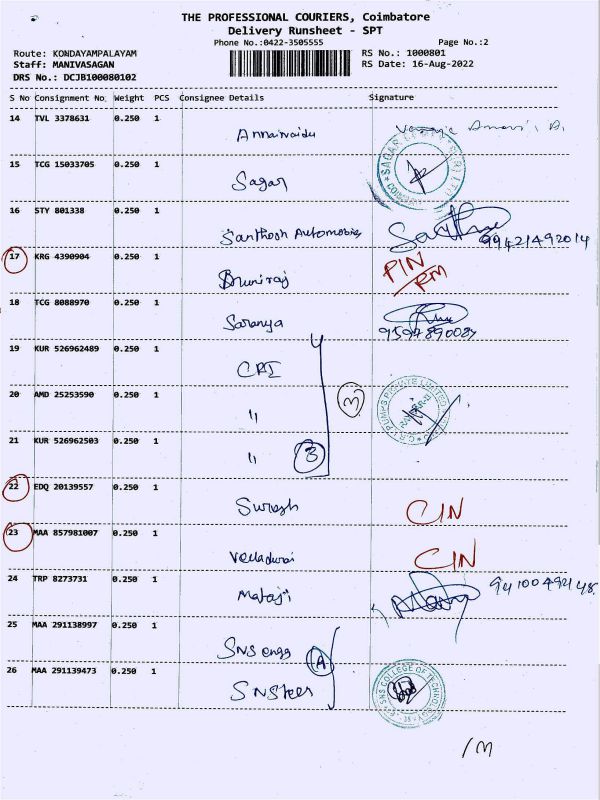 THE PROFESSIONAL COURIERS, Coimbatore
Delivery Runsheet - SPT
Phone No.:0422-3505555 Page No.:2
Route: KONDAYAMPALAYAM RS No.: 1000801
Staff: MANIVASAGAN RS Date: 16-Aug-2022
DRS No.: DCJB100080102
S No Consignment No. Weight PCS Consignee Details Signature
14 TVL 3378631 0.250 1
15 TCG 15033705 0.250 1 Sagar
16 STY 801338 0.250 1 Santhosh Automobiles 99421492014
17 KRG 4390904 0.250 1 Muniraj PIN/RM
18 TCG 8088970 0.250 1 Saranya
19 KUR 526962489 0.250 1 CRI
20 AMD 25253590 0.250 1 〃
21 KUR 526962503 0.250 1 〃 3
22 EDQ 20139557 0.250 1 Suresh CIN
23 MAA 857981007 0.250 1 Velladurai CIN
24 TRP 8273731 0.250 1 Mataji
25 MAA 291138997 0.250 1 SNS engg
26 MAA 291139473 0.250 1 SNS SNS COLLEGE OF TECHNOLOGY